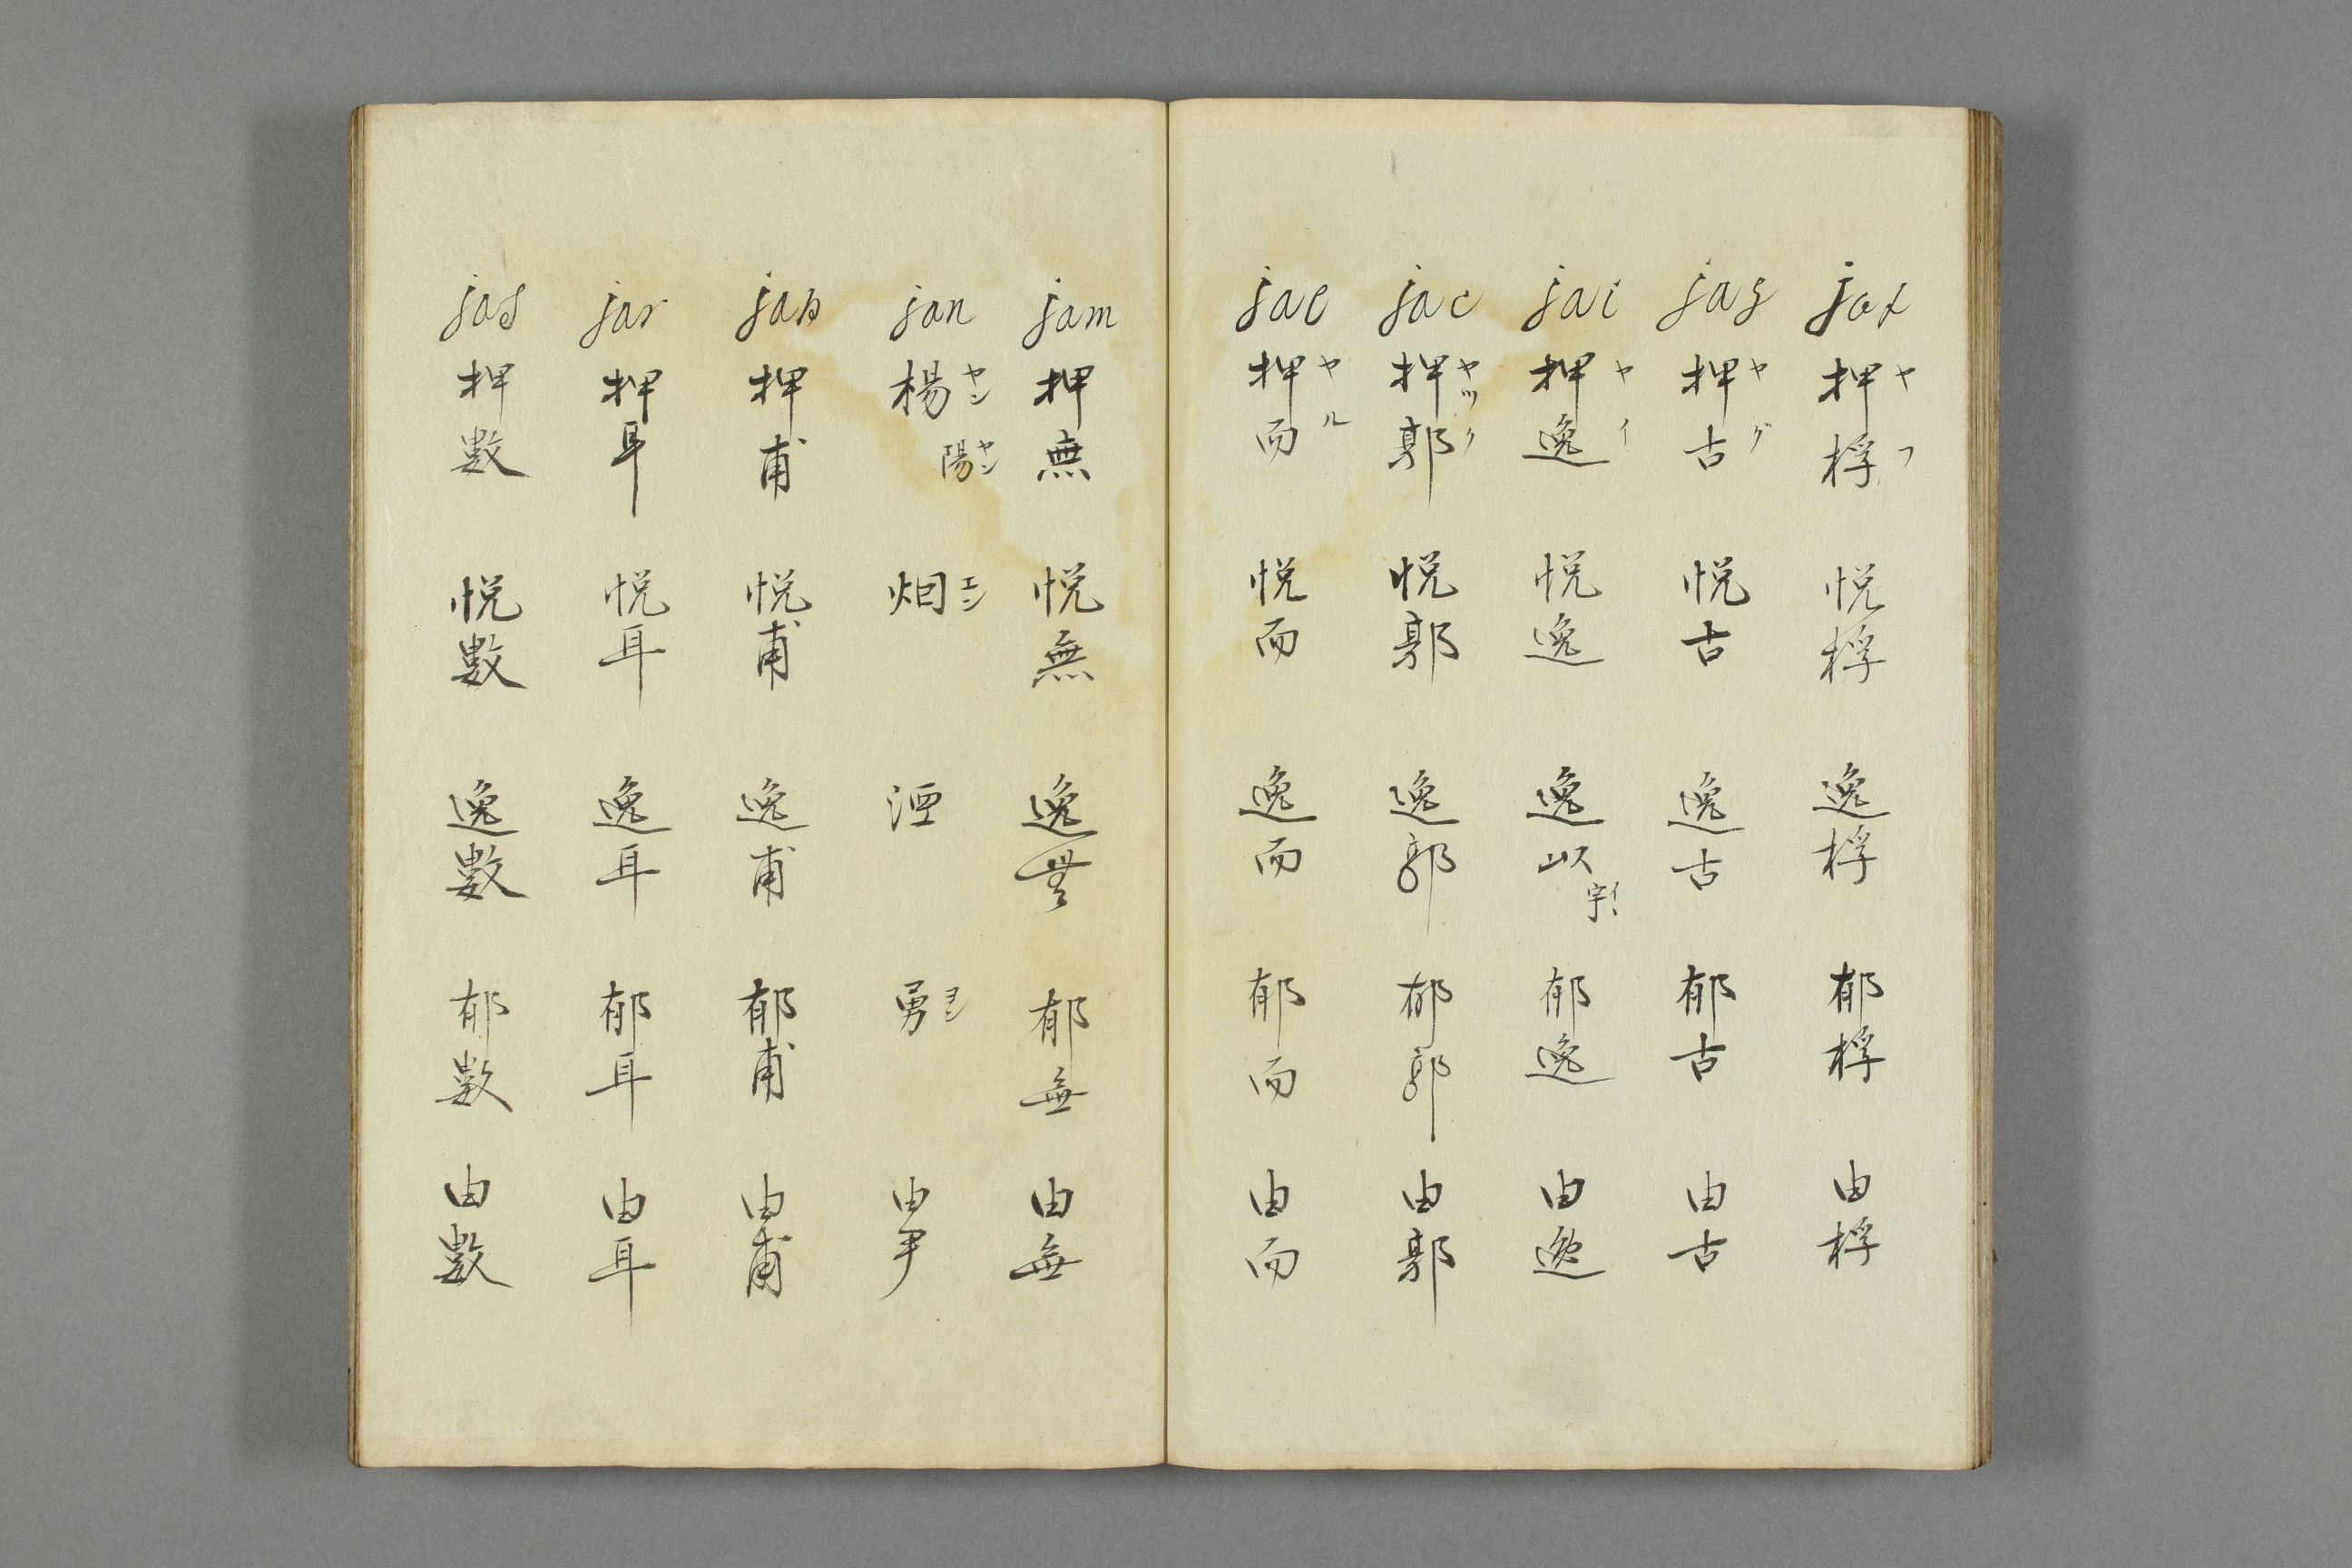 jaf 押桴 ヤフ 悦桴 逸桴 郁桴 由桴
jag 押古 ヤグ 悦古 逸古 郁古 由古
jai 押逸 ヤイ 悦逸 逸以 郁逸 由逸
jac 押郭 ヤック 悦郭 逸郭 郁郭 由郭
jal 押而 ヤル 悦而 逸而 郁而 由而
jam 押無 悦無 逸無 郁無 由無
jan 楊 ヤン 陽 ヤン 烟 エン 湮 勇 ヨン 由尹
jap 押甫 悦甫 逸甫 郁甫 由甫
jar 押耳 悦耳 逸耳 郁耳 由耳
jas 押數 悦數 逸數 郁數 由數